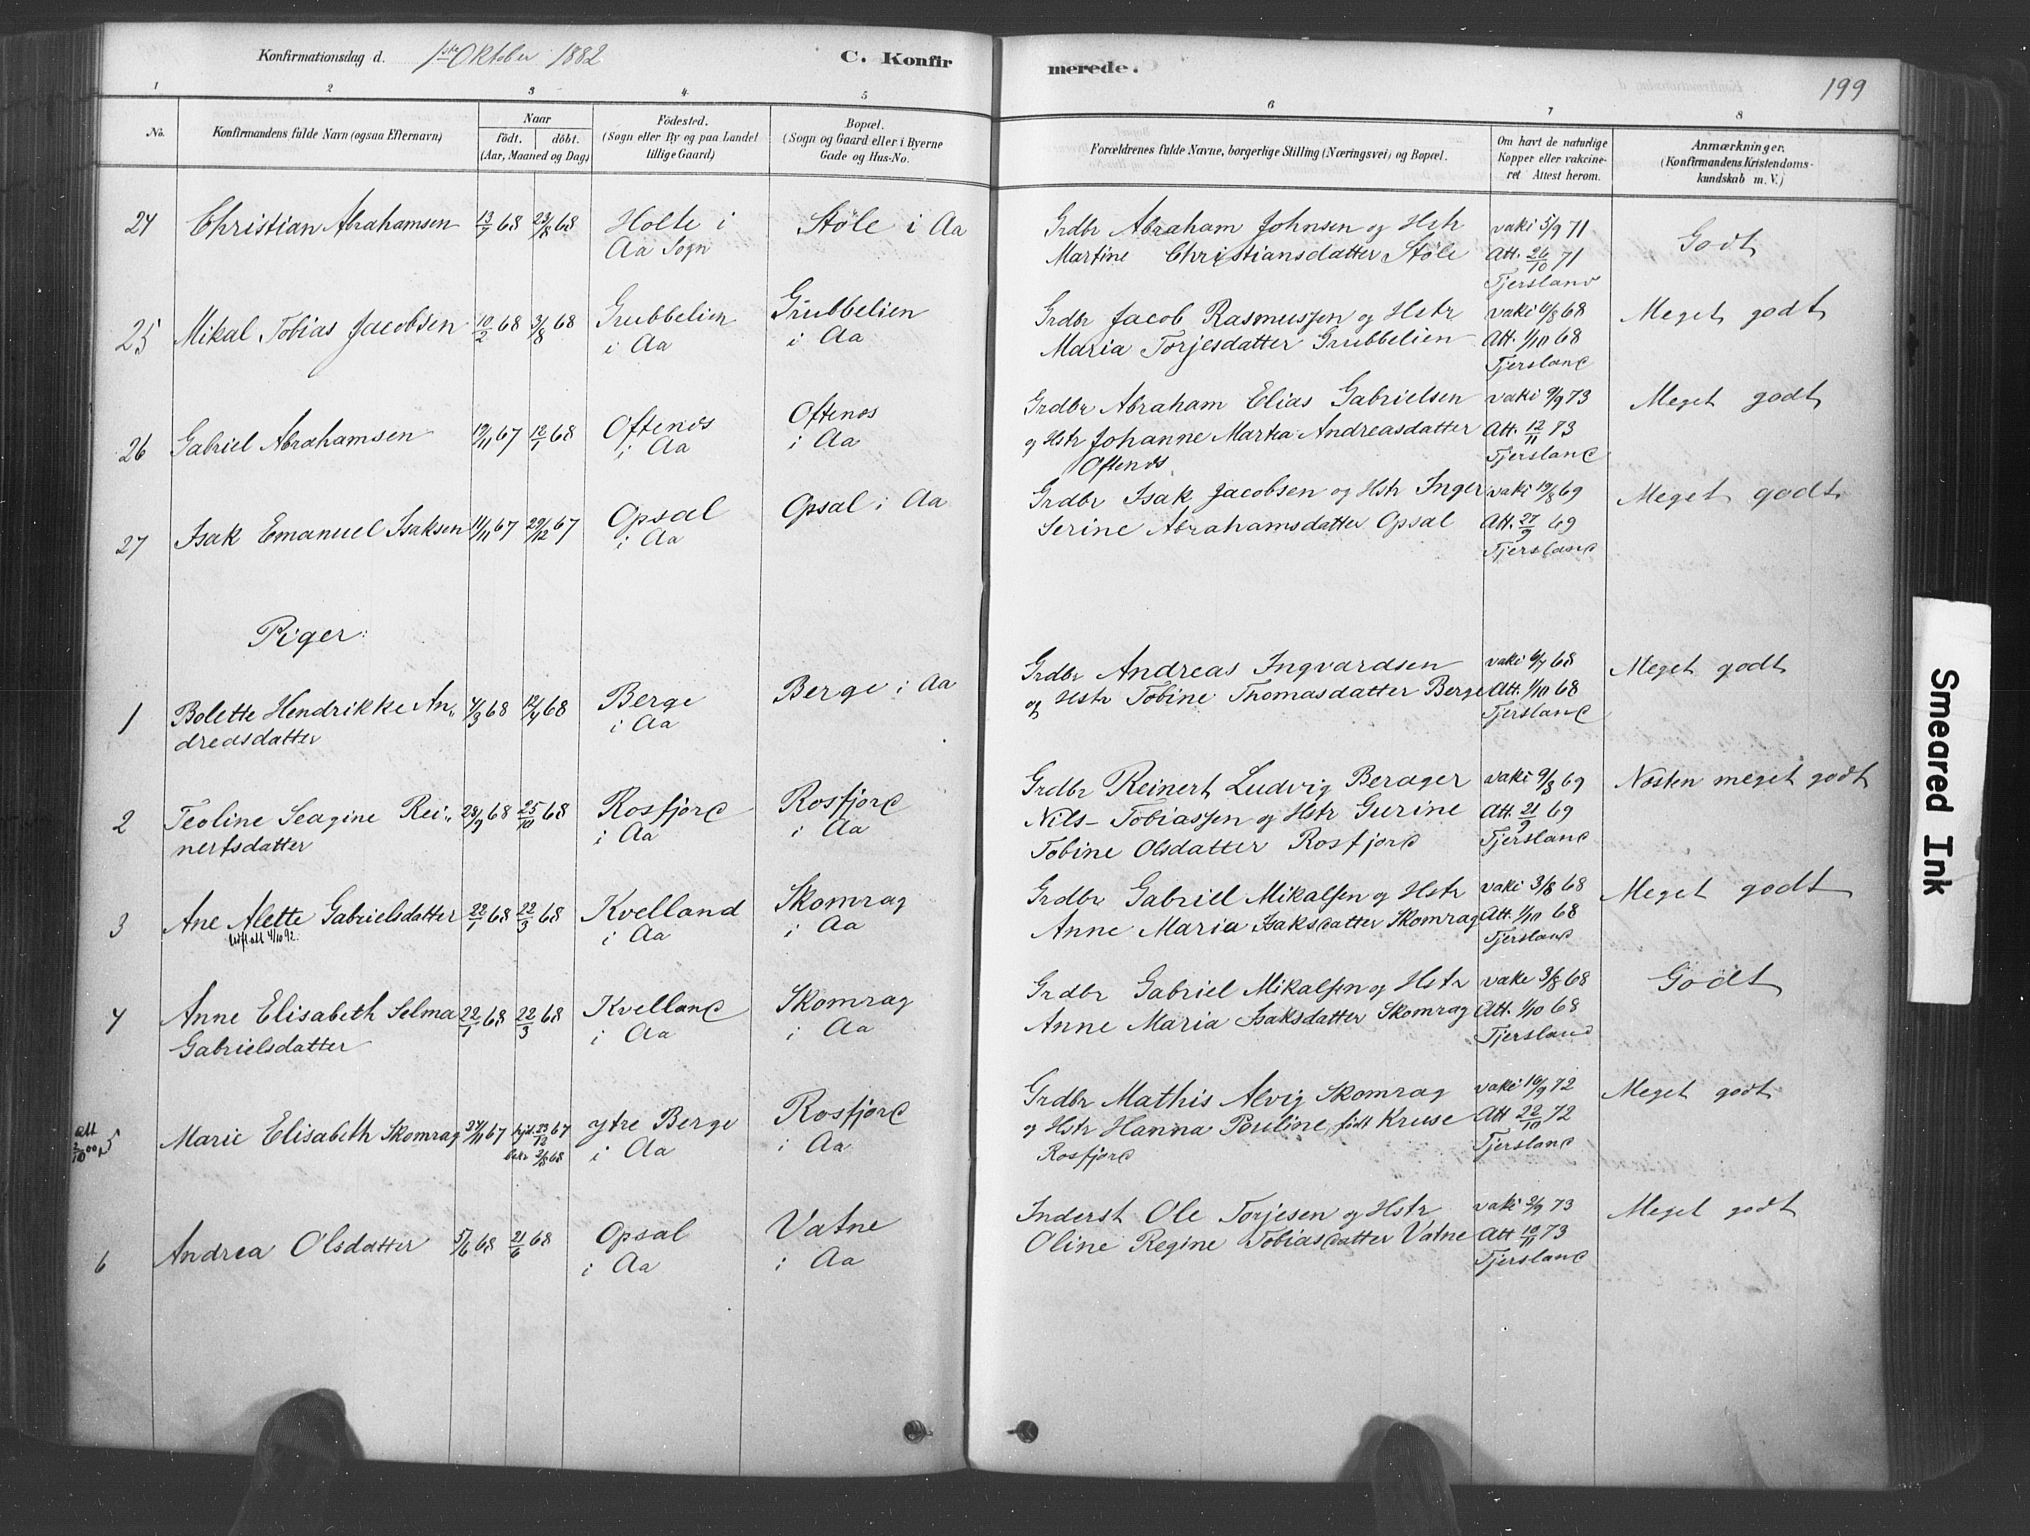 Konfirmationsdag d. 1ste Oktober 1882
C. Konfirmerede.
199
1 2 3 4 5 6 7 8
No.
Konfirmandens fulde Navn (ogsaa Efternavn)
Naar
födt. döbt.
(Aar, Maaned og Dag)
Födested.
(Sogn eller By og paa Landet
tillige Gaard)
Bopæl.
(Sogn og Gaard eller i Byerne
Gade og Hus-No.
Forældrenes fulde Navne, borgerlige Stilling (Næringsvei) og Bopæl.
Om havt de naturlige
Kopper eller vakcine-
ret Attest herom.
Anmærkninger.
(Konfirmandens Kristendoms-
kundskab m. V.)
24 Christian Abrahamsen 13/7 68 23/8 68 Holte i Støle i Aa
Aa Sogn
Grdbr Abraham Johnsen og Hstr vaki 5/9 71 Godt
Martine Christiansdatter Støle Att. 26/10 71
Tjersland
25 Mikal Tobias Jacobsen 10/2 68 3/8 68 Grubbelien Grubbelien
i Aa i Aa
Grdbr Jacob Rasmussen og Hstr vaki 6/8 68 Meget godt
Maria Torjesdatter Grubbelien Att. 1/10 68
Tjersland
26 Gabriel Abrahamsen 12/11 67 12/1 68 Oftenes Oftenes
i Aa i Aa
Grdbr Abraham Elias Gabrielsen vaki 9/9 73 Meget godt
og Hstr Johanne Martea Andreasdatter Att. 12/11 73
Oftenes Tjersland
27 Isak Emanuel Isaksen 11/11 67 29/12 67 Opsal Opsal i Aa
i Aa
Grdbr Isak Jacobsen og Hstr Inger vaki 19/8 69 Meget godt
Serine Abrahamsdatter Opsal Att. 27/9 69
Tjersland
Piger:
1 Bolette Hendrikke An„ 4/3 68 12/4 68 Berge Berge i Aa
dreasdatter i Aa
Grdbr Andreas Ingvardsen vaki 6/7 68 Meget godt
og Hstr Tobine Thomasdatter Berge Att. 1/10 68
Tjersland
2 Teoline Seagine Rei„ 28/9 68 25/10 68 Rosfjord Rosfjord
nertsdatter i Aa i Aa
Grdbr Reinert Ludvig Berager vaki 9/8 69 Næsten meget godt
Nils-Tobiassen og Hstr Gurine Att. 21/9 69
Tobine Olsdatter Rosfjord Tjersland
3 Ane Alette Gabrielsdatter 22/1 68 22/3 68 Kvelland Skomrag
4/10 92. i Aa i Aa
Grdbr Gabriel Mikalsen og Hstr vaki 3/8 68 Meget godt
Anne Maria Isaksdatter Skomrag Att. 1/10 68
Tjersland
4 Anne Elisabeth Selma 22/1 68 22/3 68 Kvelland Skomrag
Gabrielsdatter i Aa i Aa
Grdbr Gabriel Mikalsen og Hstr vake 3/8 68 Godt
Anne Maria Isaksdatter Skomrag Att. 1/10 68
Tjersland
att 5 Marie Elisabeth Skomrag 27/11 67 hjd. 29/12 67 ytre Berge Rosfjord
bekr 2/8 68 i Aa i Aa
Grdbr Mathis Alvig Skomrag vaki 16/9 72 Meget godt
og Hstr Hanna Pouline, født Kruse Att 22/10 72
Rosfjord Tjersland
6 Andrea Olsdatter 5/6 68 21/6 68 Opsal Vatne
i Aa i Aa
Inderst Ole Torjesen og Hstr vaki 2/9 73 Meget godt
Oline Regine Tobiasdatter Vatne Att 10/11 73
Tjersland
Smeared Ink